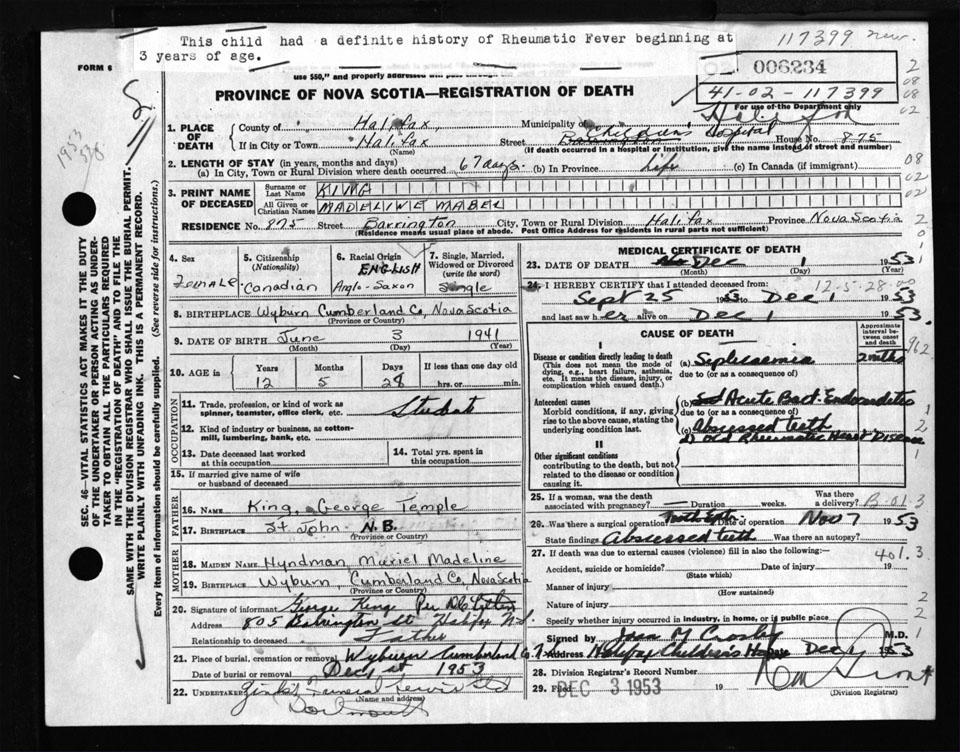 This child had a definite history of Rheumatic Fever beginning at
3 years of age.
117399 new.
FORM 6
use $50," and properly addressed
006234
41-02-117399
For use of the Department only
PROVINCE OF NOVA SCOTIA—REGISTRATION OF DEATH
1. PLACE OF DEATH
County of Halifax, Municipality of Halifax
If in City or Town Halifax Street Barrington Children's Hospital House No. 875
(Name) (If death occurred in a Hospital or institution, give the name instead of street and number)
2. LENGTH OF STAY (in years, months and days)
(a) In City, Town or Rural Division where death occurred 67 days. (b) In Province Life (c) In Canada (if immigrant)
3. PRINT NAME OF DECEASED
Surname or Last Name KING
All Given or Christian Names MADELINE MABEL
RESIDENCE No. 875 Street Barrington City, Town or Rural Division Halifax Province Nova Scotia
(Residence means usual place of abode. Post Office Address for residents in rural parts not sufficient)
4. Sex Female
5. Citizenship (Nationality) Canadian
6. Racial Origin ENGLISH Anglo-Saxon
7. Single, Married, Widowed or Divorced (write the word) Single
8. BIRTHPLACE Wyburn Cumberland Co, Nova Scotia
(Province or Country)
9. DATE OF BIRTH June 3 1941
(Month) (Day) (Year)
10. AGE in Years Months Days If less than one day old
12 5 28 hrs. or min.
OCCUPATION
11. Trade, profession, or kind of work as spinner, teamster, office clerk, etc. Student
12. Kind of industry or business, as cotton-mill, lumbering, bank, etc.
13. Date deceased last worked at this occupation
14. Total yrs. spent in this occupation
15. If married give name of wife or husband of deceased
FATHER
16. NAME King, George Temple
17. BIRTHPLACE St John N.B.
(Province or Country)
MOTHER
18. MAIDEN NAME Hyndman, Muriel Madeline
19. BIRTHPLACE Wyburn, Cumberland Co, Nova Scotia
(Province or Country)
20. Signature of informant George King Per
Address 805 Barrington St Halifax N.S.
Relationship to deceased Father
21. Place of burial, cremation or removal Wyburn Cumberland Co.
Date of burial or removal Dec 1953
22. UNDERTAKER Zink's Funeral Service Ltd
(Name and address)
Dartmouth
MEDICAL CERTIFICATE OF DEATH
23. DATE OF DEATH Dec 1 1953
(Month) (Year)
24. I HEREBY CERTIFY that I attended deceased from: 12-5-28-00
Sept 25 1953 to Dec 1 1953
and last saw her alive on Dec 1 1953.
CAUSE OF DEATH
Approximate interval between onset and death
I
Disease or condition directly leading to death
(This does not mean the mode of dying, e.g., heart failure, asthenia, etc. It means the disease, injury, or complication which caused death.)
(a) Septicaemia 2 mths
due to (or as a consequence of)
Antecedent causes
Morbid conditions, if any, giving rise to the above cause, stating the underlying condition last.
(b) Acute Bact. Endocarditis
due to (or as a consequence of)
(c) Abscessed teeth
d) Old Rheumatic Heart Disease
II
Other significant conditions
contributing to the death, but not related to the disease or condition causing it.
25. If a woman, was the death associated with pregnancy? Duration weeks. Was there a delivery? B-01.3
26. Was there a surgical operation Date of operation Nov 7 1953
State findings Abscessed teeth Was there an autopsy?
27. If death was due to external causes (violence) fill in also the following:— 401.3
Accident, suicide or homicide? Date of injury 19
(State which)
Manner of injury
(How sustained)
Nature of injury
Specify whether injury occurred in industry, in home, or in public place
Signed by Joan M Crosby M.D.
Address Halifax Children's Hosp. Dec 1953
28. Division Registrar's Record Number
29. Filed DEC 3 1953 19
(Division Registrar)
SEC. 46—VITAL STATISTICS ACT MAKES IT THE DUTY
OF THE UNDERTAKER OR PERSON ACTING AS UNDER-
TAKER TO OBTAIN ALL THE PARTICULARS REQUIRED
IN THE "REGISTRATION OF DEATH" AND TO FILE THE
SAME WITH THE DIVISION REGISTRAR WHO SHALL ISSUE THE BURIAL PERMIT.
WRITE PLAINLY WITH UNFADING INK. THIS IS A PERMANENT RECORD.
Every item of information should be carefully supplied. (See reverse side for instructions.)